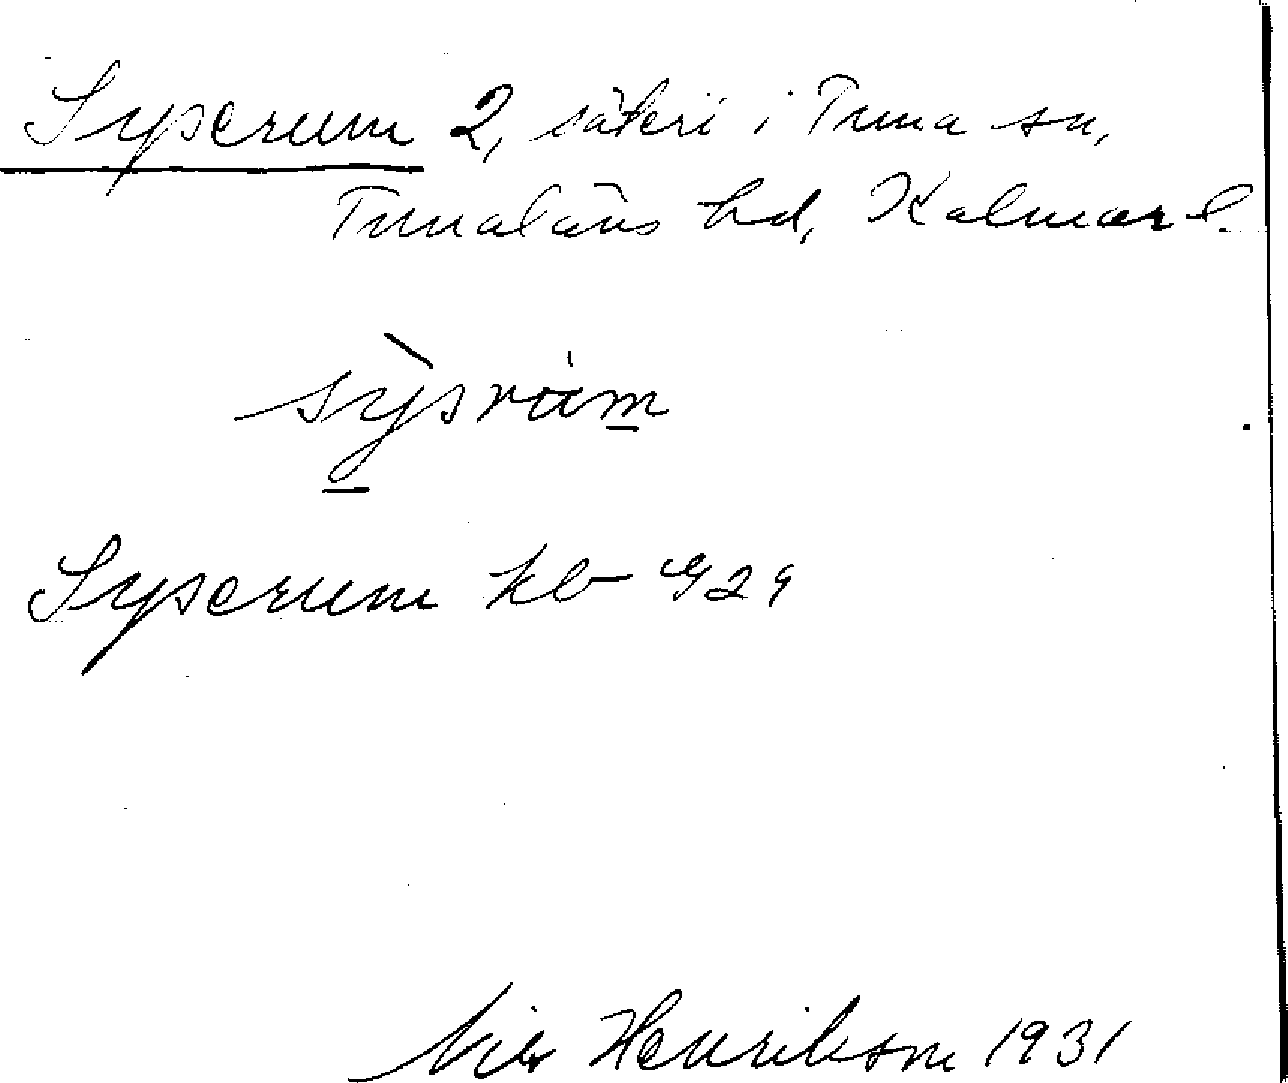 Syserum 2, säteri i Tuna sn,
Tunaläns hd, Kalmar l.
sỳsrùm
Syserum kb 929
Nils Henrikson 1931